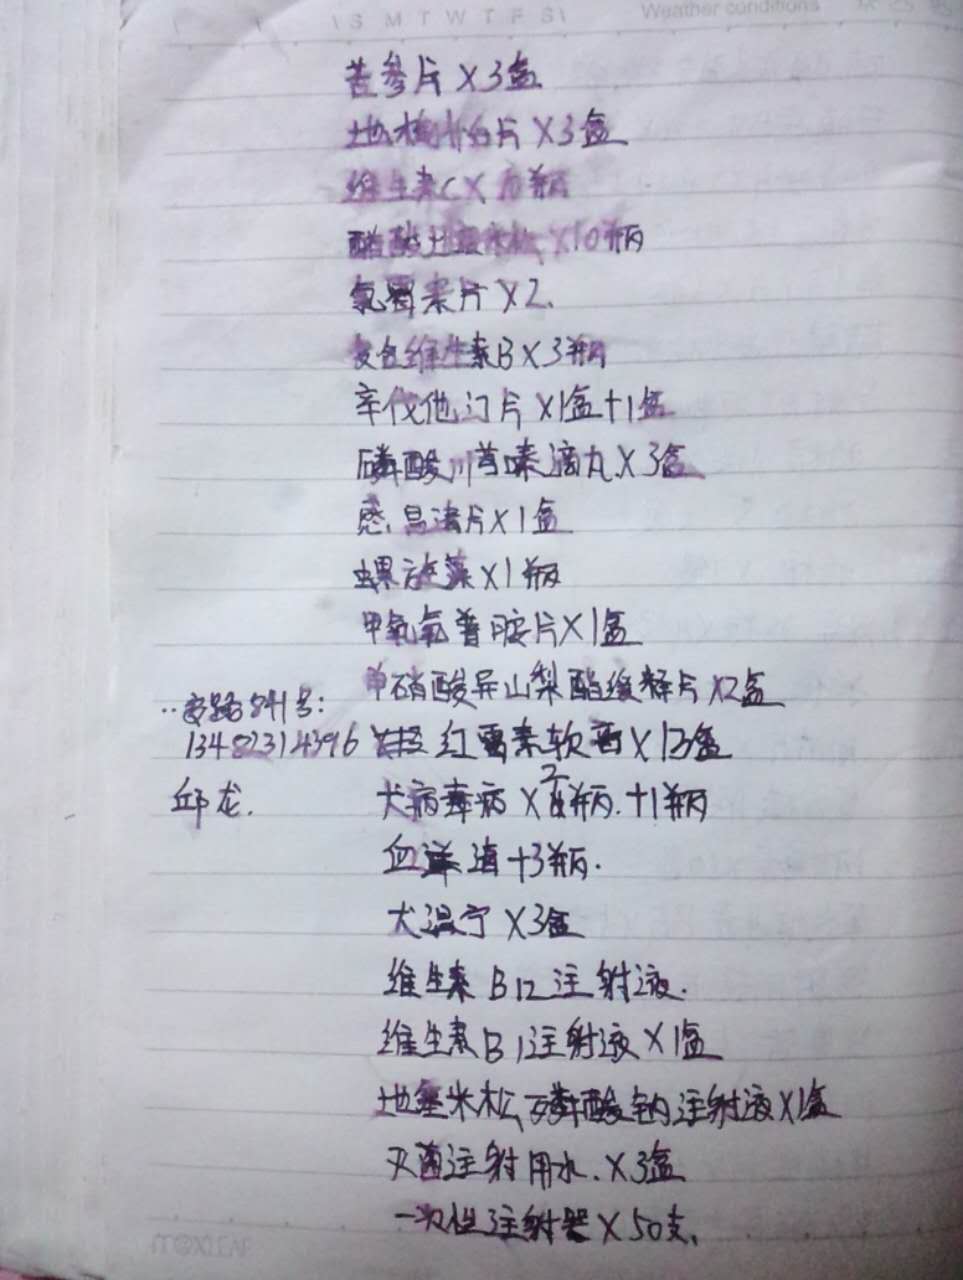 S M T W T F S Weather conditions
苦参片×3盒
地榆升白片×3盒
维生素C×10瓶
醋酸地塞米松×10瓶
氯霉素片×2、
复合维生素B×3瓶
辛伐他汀片×1盒+1盒
磷酸川芎嗪滴丸×3盒
感 片×1盒
螺旋藻×1瓶
甲氧氯普胺片×1盒
单硝酸异山梨酯缓释片×2盒
路841号:
红霉素软膏×13盒
邱龙.
犬病毒病×2瓶.+1瓶
血 清+3瓶.
犬温宁×3盒
维生素B12注射液.
维生素B1注射液×1盒
地塞米松磷酸钠注射液×1盒
灭菌注射用水.×3盒
一次性注射器×50支、